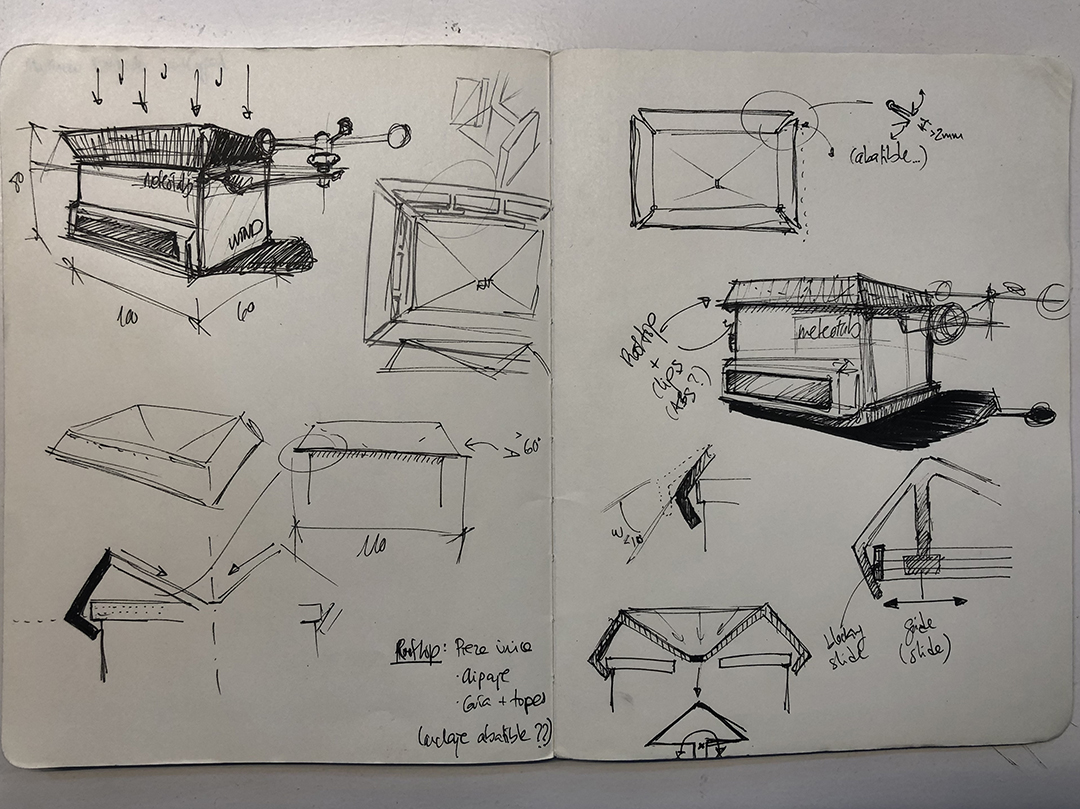 80
meteotab
WIND
100
60
>60°
110
Rooftop: Pieza única
· clipaje
· Guía + topes
(anclaje abatible ??)
>2mm
(abatible...)
Rooftop
+
clips
(ABS?)
meteotab
blocking
slide
guide
(slide)